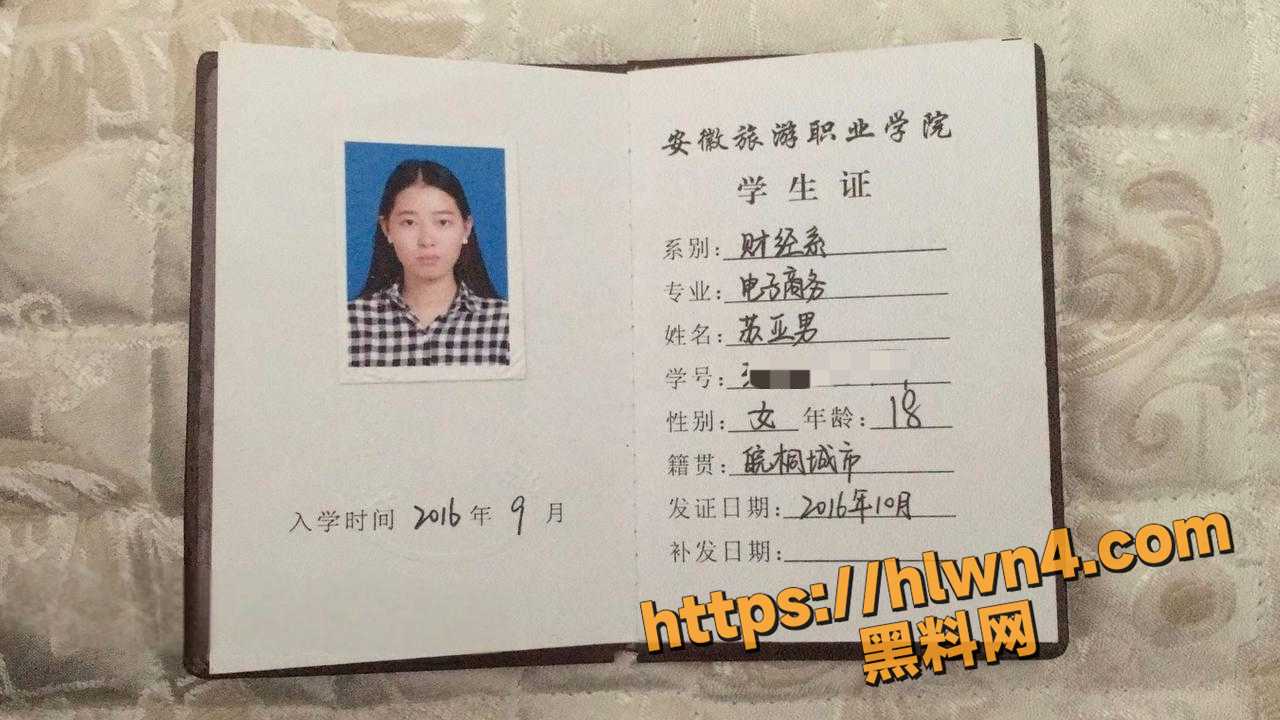 安徽旅游职业学院
学生证
系别：财经系
专业：电子商务
姓名：苏亚男
学号：
性别：女 年龄：18
籍贯：皖桐城市
发证日期：2016年10月
补发日期：
入学时间 2016 年 9 月
https://hlwn4.com
黑料网